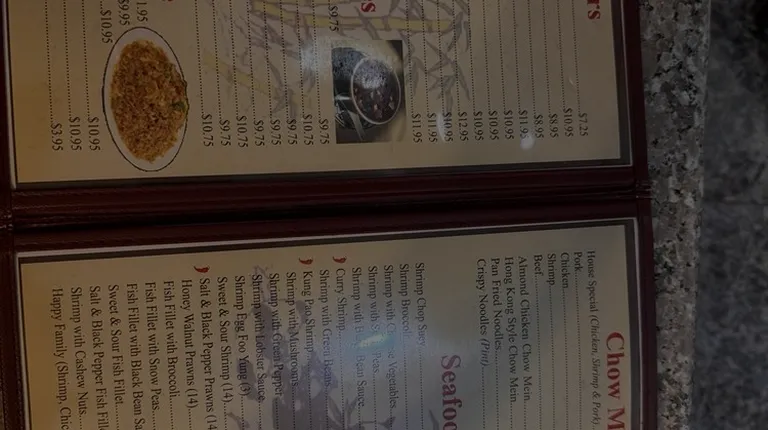 $7.25
$10.95
$8.95
$8.95
$11.95
$10.95
$10.95
$10.95
$12.95
$10.95
$11.95
$11.95
$9.75
$9.75
$10.75
$9.75
$9.75
$9.75
$10.75
$9.75
$10.75
$9.95
$10.95
$10.95
$10.95
$3.95
Chow
House Special (Chicken, Shrimp & Pork)
Pork
Chicken
Shrimp
Beef
Almond Chicken Chow Mein
Hong Kong Style Chow Mein
Pan Fried Noodles
Crispy Noodles (Pint)
Shrimp Chop Suey
Shrimp Broccoli
Shrimp with Vegetables
Shrimp with Peas
Shrimp with Bean Sauce
Curry Shrimp
Shrimp with Green Beans
Kung Pao Shrimp
Shrimp with Mushrooms
Shrimp with Green Pepper
Shrimp with Lobster Sauce
Shrimp Egg Foo Yung (3)
Sweet & Sour Shrimp (14)
Salt & Black Pepper Prawns (14
Honey Walnut Prawns (14)
Fish Fillet with Broccoli
Fish Fillet with Snow Peas
Fish Fillet with Black Bean Sa
Sweet & Sour Fish Fillet
Salt & Black Pepper Fish Fille
Shrimp with Cashew Nuts
Happy Family (Shrimp, Chic